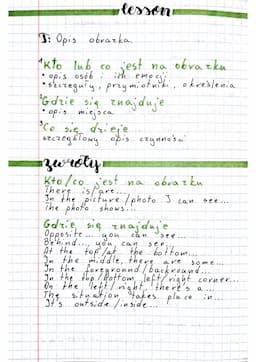 lesson
T: Opis obrazka
1 Kto lub co jest na obrazku
• opis osób i ich emocji
• szczegóły, przymiotniki, określenia
2 Gdzie się znajduje
• opis miejsca
3 Co się dzieje
szczegółowy opis czynności
zwroty
Kto/co jest na obrazku
There is/are...
In the picture/photo I can see...
The photo shows...
Gdzie się znajduje
Opposite... you can see...
Behind... you can see...
At the top/at the bottom...
In the middle, there are some...
In the foreground/backround...
In the top/bottom left/right corner...
On the left/right, there's a...
The situation takes place in...
It's outside/inside...